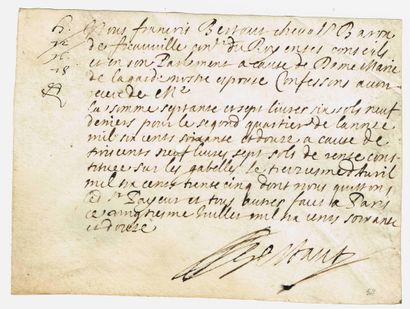 Nous francois Bertaut chevalr Baron
de freauville conr du Roy en ses conseils
et en son Parlement a cause de Dame Marie
de la garde nostre espouse Confessons avoir
receu de Mr
La somme septante et sept livres six sols neuf
deniers pour le segond quartier de lannee
mil six cents soixante et douze a cause de
trois cents neuf livres sept sols de rente cons
tituee sur les gabelles le treiziesme d'Auril
mil six cents trente cinq dont nous quittons
led Sr Payeur et tous autres fait a Paris
ce cinquiesme Juillet mil six cents soixante
et douze
Bertaut